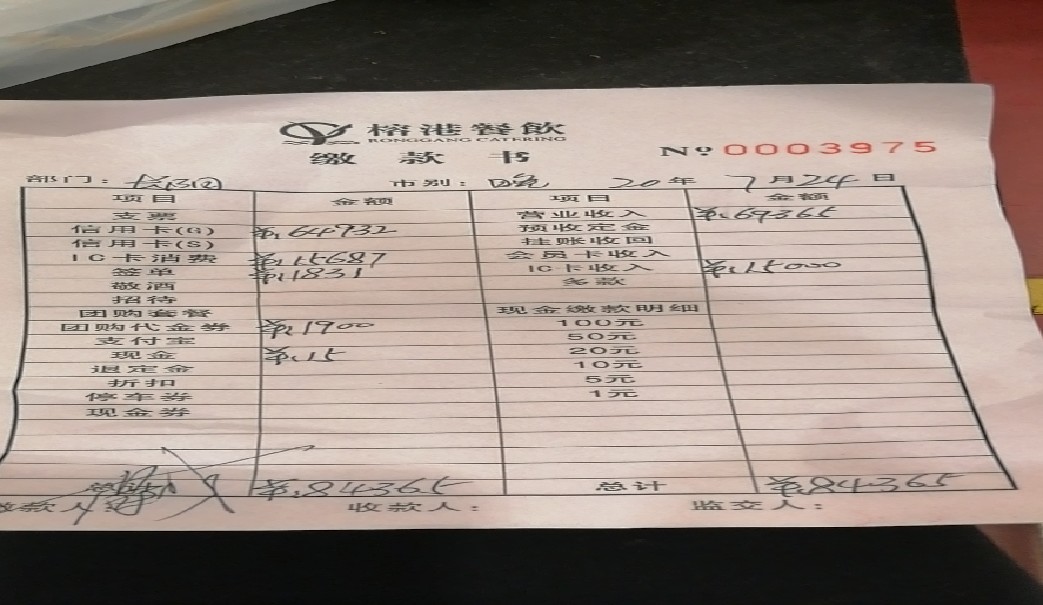 榕港餐飲
RONGGANG CATERING
缴款书
Nº 0003975
部门： 市别：晚 20 年 7月24日
项目 金额 项目 金额
支票 营业收入 ¥:69365
信用卡(G) ¥:64932 预收定金
信用卡(S) 挂账收回
IC卡消费 ¥:15687 会员卡收入
签单 ¥:1831 IC卡收入 ¥:15000
敬酒 多款
招待
团购套餐 现金缴款明细
团购代金券 ¥:1900 100元
支付宝 50元
现金 ¥:15 20元
退定金 10元
折扣 5元
停车券 1元
现金券
¥:84365 总计 ¥:84365
缴款人： 收款人： 监交人：